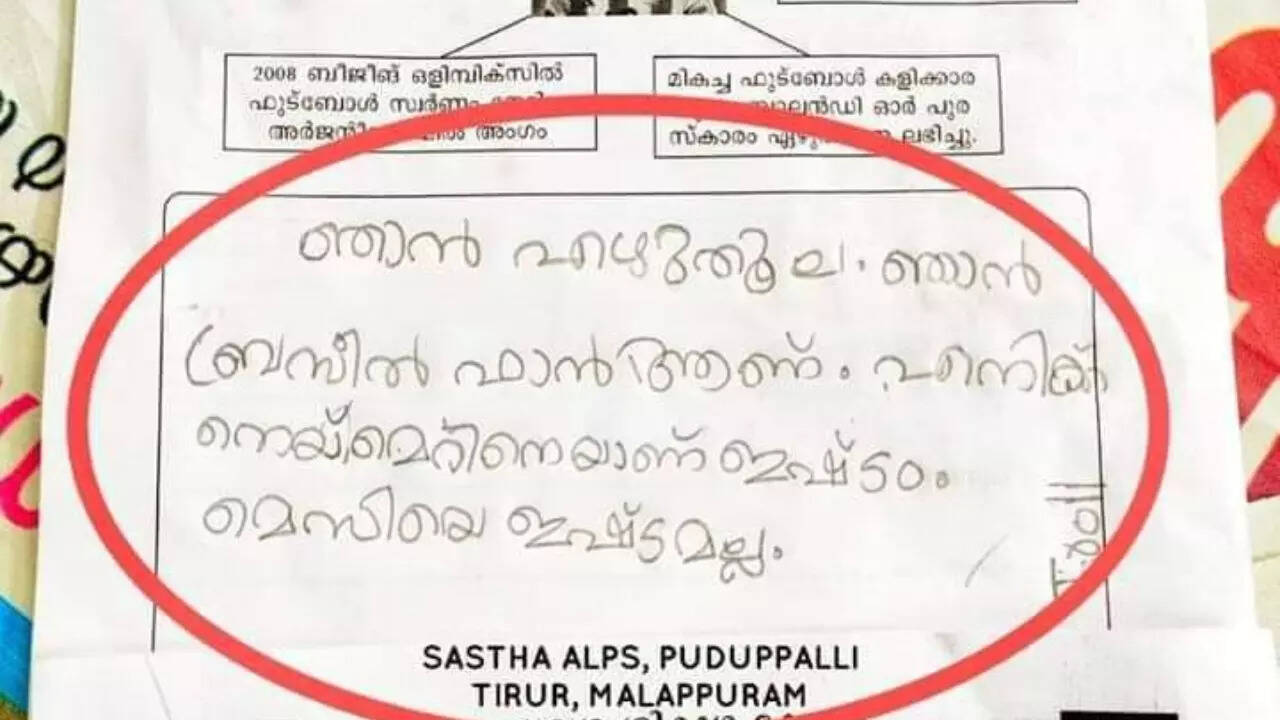 2008 ബീജിങ് ഒളിമ്പിക്സിൽ
ഫുട്ബോൾ സ്വർണം
അംഗം
മികച്ച ഫുട്ബോൾ കളിക്കാര
ഓർ പുര
സ്കാരം ലഭിച്ചു.
ഞാൻ എഴുതൂല. ഞാൻ
ബ്രസീൽ ഫാൻ ആണ്. എനിക്ക്
നെയ്മെറിനെയാണ് ഇഷ്ടം.
മെസിയെ ഇഷ്ടമല്ല.
T.roll
SASTHA ALPS, PUDUPPALLI
TIRUR, MALAPPURAM